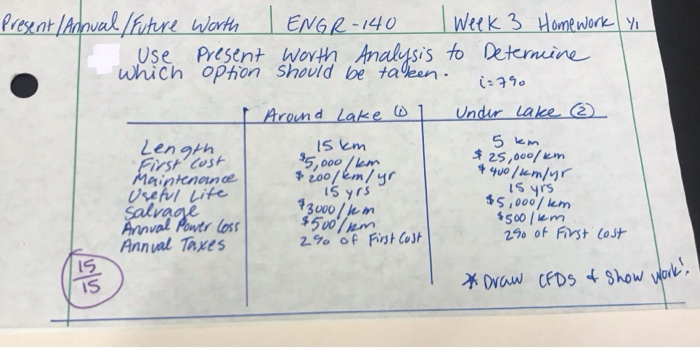 Present/Annual/Future Worth ENGR-140 Week 3 Homework Y1
Use Present Worth Analysis to Determine
which option should be taken.
i=7%
Around Lake ① Under Lake ②
Length 15 km 5 km
First Cost $5,000/km $25,000/km
Maintenance $200/km/yr $400/km/yr
Useful Life 15 yrs 15 yrs
Salvage $3000/km $5,000/km
Annual Power Loss $500/km $500/km
Annual Taxes 2% of First Cost 2% of First Cost
15
15
* Draw CFDs & Show Work!